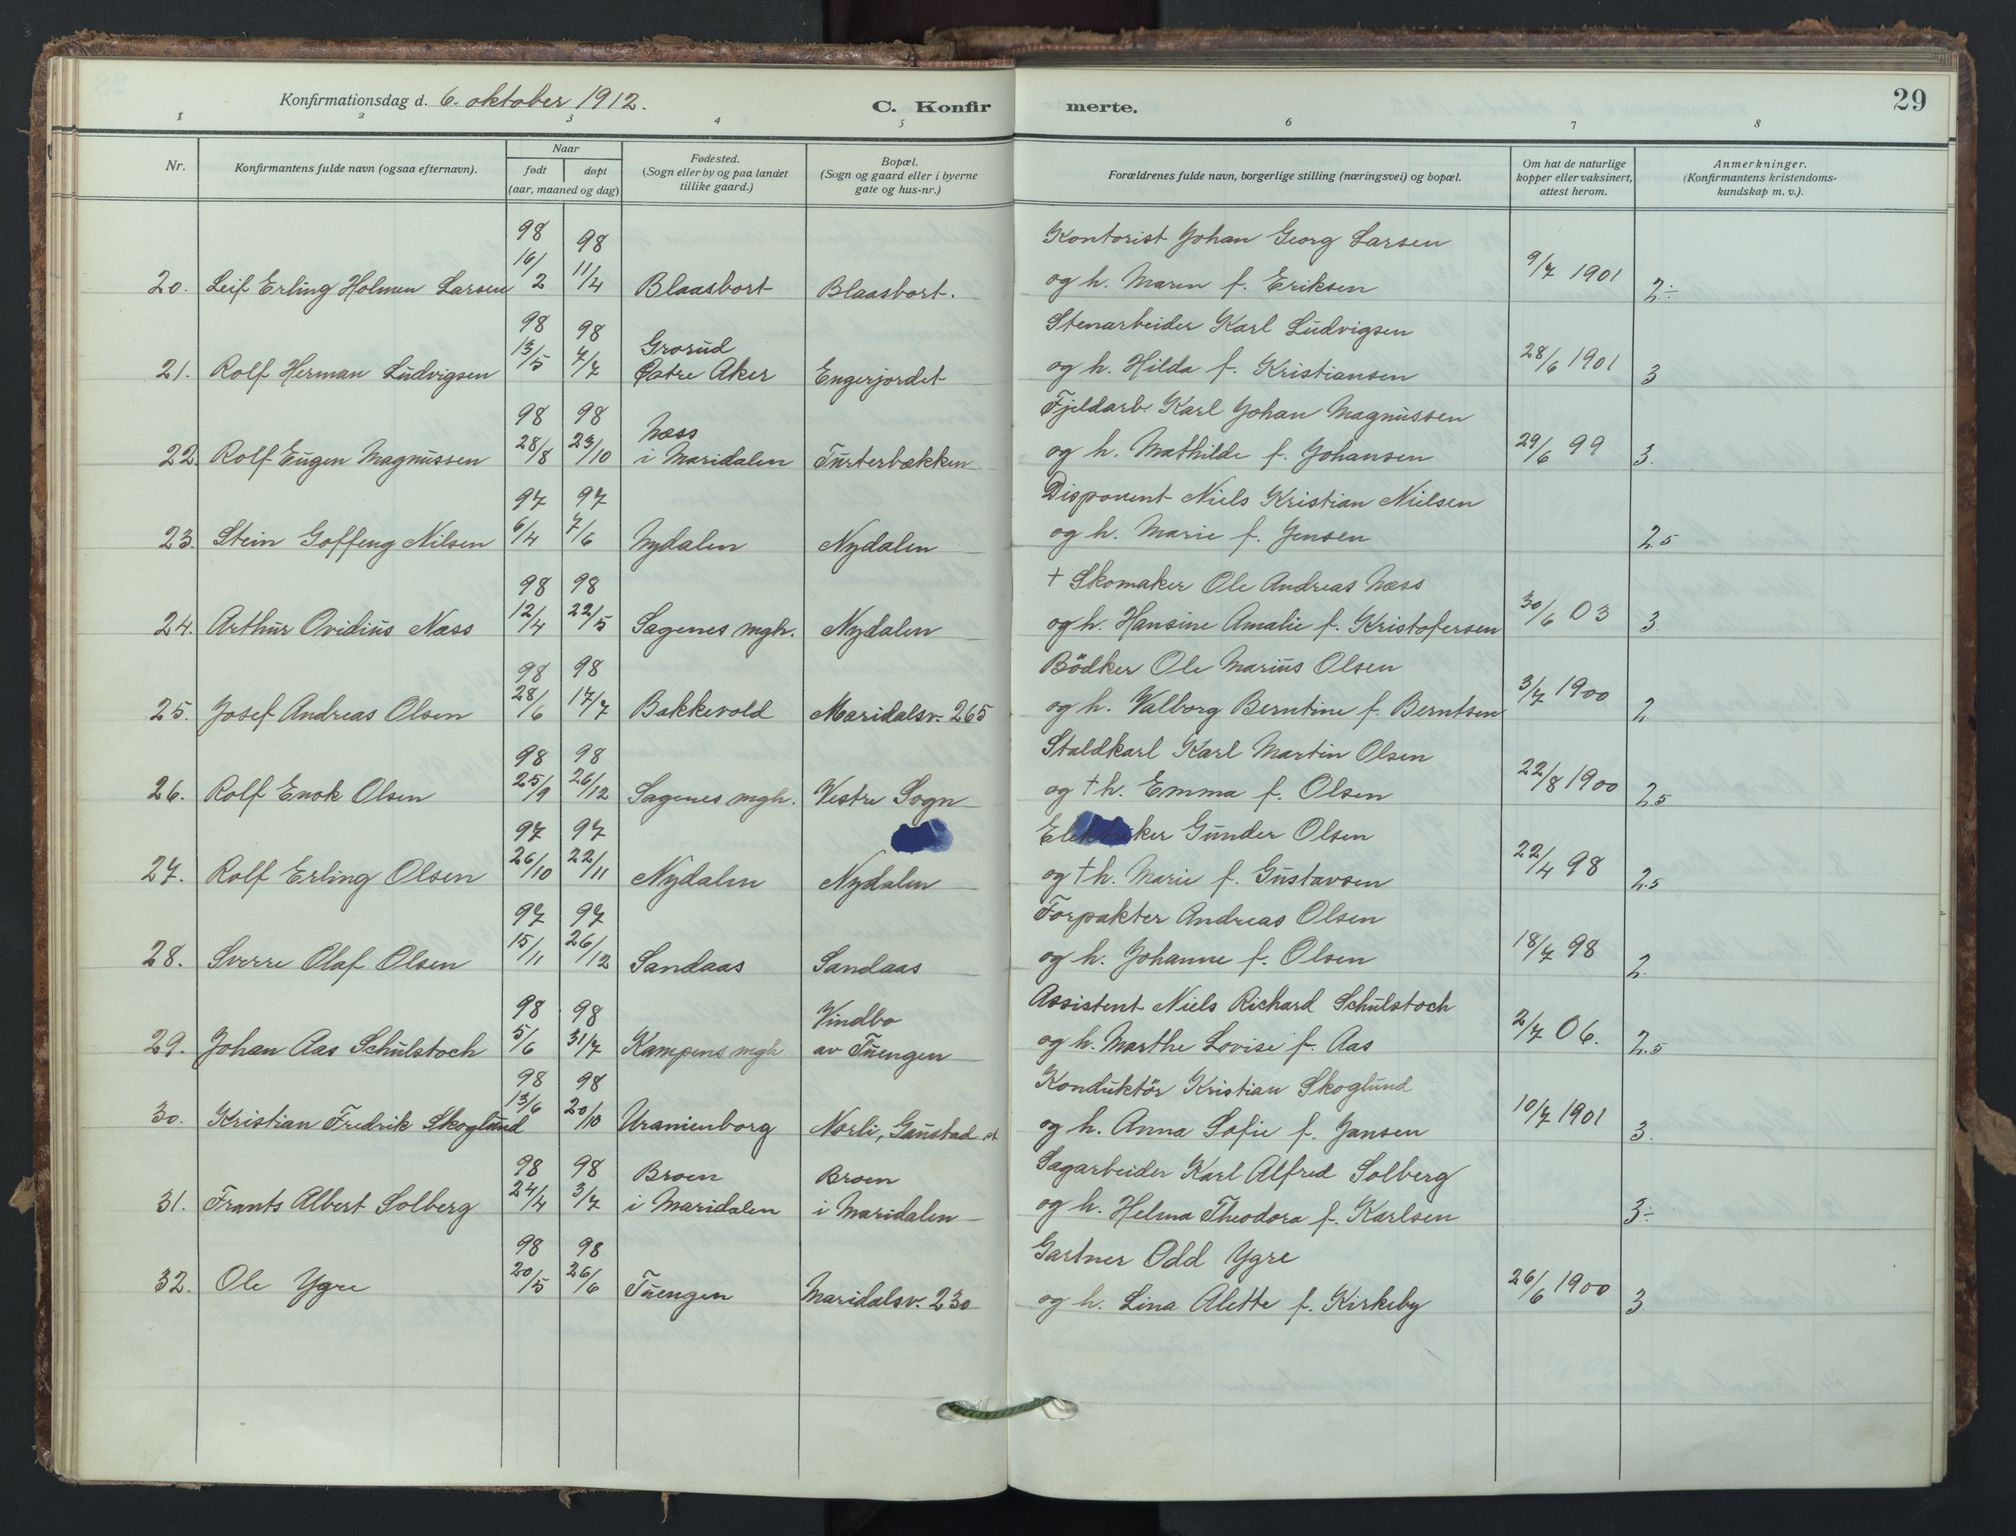 Konfirmationsdag d. 6. oktober 1912.
C. Konfir
merte.
29
1 2 3 4 5 6 7 8
Nr.
Konfirmantens fulde navn (ogsaa efternavn).
Naar
født døpt
(aar, maaned og dag)
Fødested.
(Sogn eller by og paa landet
tillike gaard.)
Bopæl.
(Sogn og gaard eller i byerne
gate og hus-nr.)
Forældrenes fulde navn, borgerlige stilling (næringsvei) og bopæl.
Om hat de naturlige
kopper eller vaksinert,
attest herom.
Anmerkninger.
(Konfirmantens kristendoms-
kundskap m. v.).
98 98 Kontorist Johan Georg Larsen
20. Leif Erling Holmen Larsen 16/2 11/4 Blaasbort Blaasbort. og h. Maren f. Eriksen 9/7 1901 2÷
98 98 Grorud Stenarbeider Karl Ludvigsen
21. Rolf Herman Ludvigsen 13/5 7/7 Østre Aker Engerjordet og h. Hilda f. Kristiansen 28/6 1901 3
98 98 Næss Fjeldarb. Karl Johan Magnussen
22. Rolf Eugen Magnussen 28/8 23/10 i Maridalen Turterbækken og h. Mathilde f. Johansen 29/6 99 3.
97 97 Disponent Niels Kristian Nielsen
23. Stein Goffeng Nilsen 6/4 7/6 Nydalen Nydalen og h. Marie f. Jensen 2.5
98 98 † Skomaker Ole Andreas Næss
24. Arthur Ovidius Næss 12/4 22/5 Sagenes mgh. Nydalen og h. Hansine Amalie f. Kristofersen 30/6 03 3
98 98 Bödker Ole Marius Olsen
25. Josef Andreas Olsen 28/6 17/7 Bakkevold Maridalsv. 265 og h. Valborg Berntine f. Berntsen 3/7 1900 2
98 98 Staldkarl Karl Martin Olsen
26. Rolf Enok Olsen 25/9 26/12 Sagenes mgh. Vestre Sogn og † h. Emma f. Olsen 22/8 1900 2.5
97 97 Elektriker Gunder Olsen
27. Rolf Erling Olsen 26/10 22/11 Nydalen Nydalen og † h. Marie f. Gustavsen 22/4 98 2.5
97 97 Forpakter Andreas Olsen
28. Sverre Olaf Olsen 15/11 26/12 Sandaas Sandaas og h. Johanne f. Olsen 18/7 98 2.
98 98 Vindbo Assistent Niels Richard Schulstoch
29. Johan Aas Schulstoch 5/6 31/7 Kampens mgh. av Tuengen og h. Marthe Lovise f. Aas 2/7 06. 2.5
98 98 Konduktör Kristian Skoglund
30. Kristian Fredrik Skoglund 13/6 20/10 Uranienborg Norli, Gaustad st og h. Anna Sofie f. Jansen 10/7 1901 3.
98 98 Broen Broen Sagarbeider Karl Alfred Solberg
31. Frants Albert Solberg 24/4 3/7 i Maridalen i Maridalen og h. Helma Theodora f. Karlsen 3÷
98 98 Gartner Odd Ygre
32. Ole Ygre 20/5 26/6 Tuengen Maridalsv. 230 og h. Lina Alette f. Kirkeby 26/6 1900 3